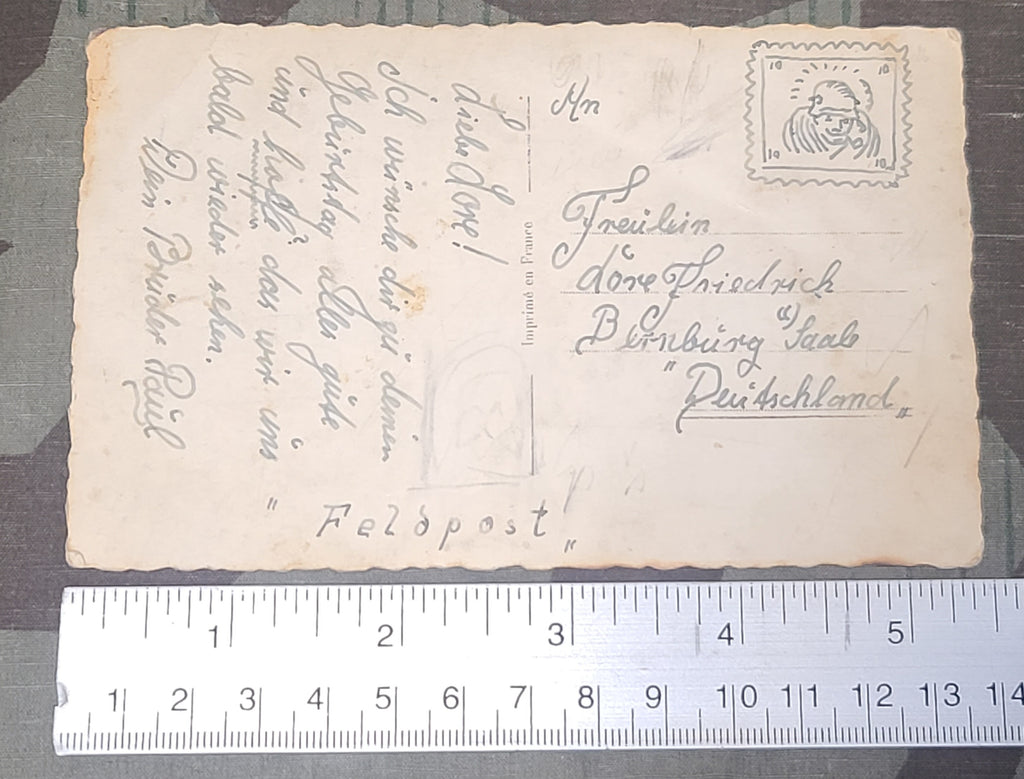 Liebe Lore!
Ich wünsche dir zu deinen
Gebürtstag alles gute
und hoffe das wir uns
bald wieder sehen.
Dein Brüder Paül
"Feldpost"
Imprimé en France
An
Freülein
Lore Friedrich
Bernbürg a/Saale
"Deütschland"
10 10
10 10
1 2 3 4 5
1 2 3 4 5 6 7 8 9 10 11 12 13 14